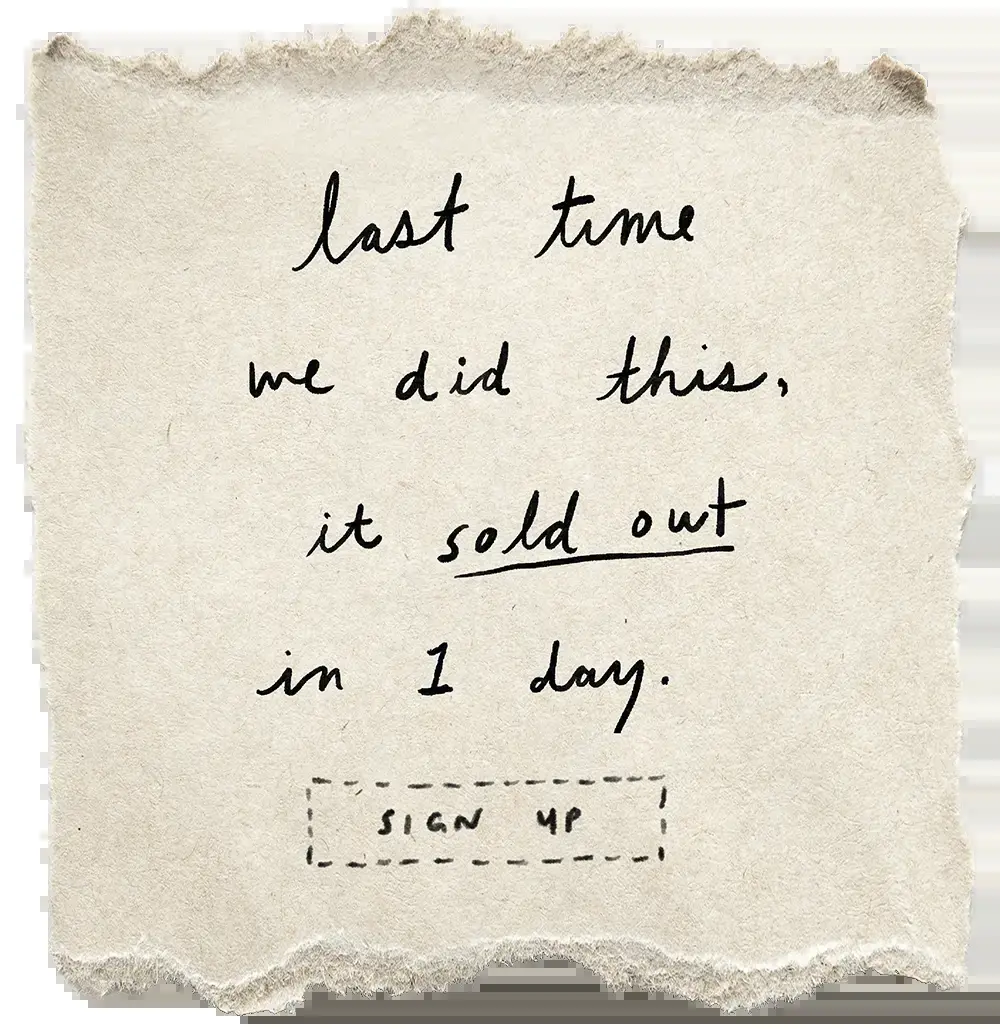 last time
we did this,
it sold out
in 1 day.
SIGN UP